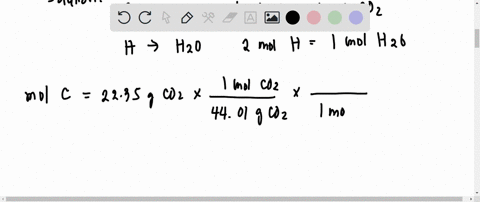 CO2
H → H2O 2 mol H = 1 mol H2O
mol C = 22.35 g CO2 × 1 mol CO2 / 44.01 g CO2 × / 1 mo